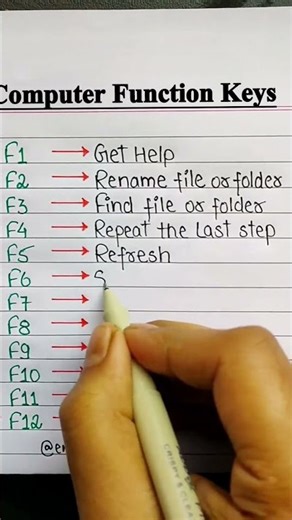 Computer Function Keys
F1 → Get Help
F2 → Rename file or folder
F3 → Find file or folder
F4 → Repeat the last step
F5 → Refresh
F6 → S
F7 →
F8 →
F9
F10
F11
F12